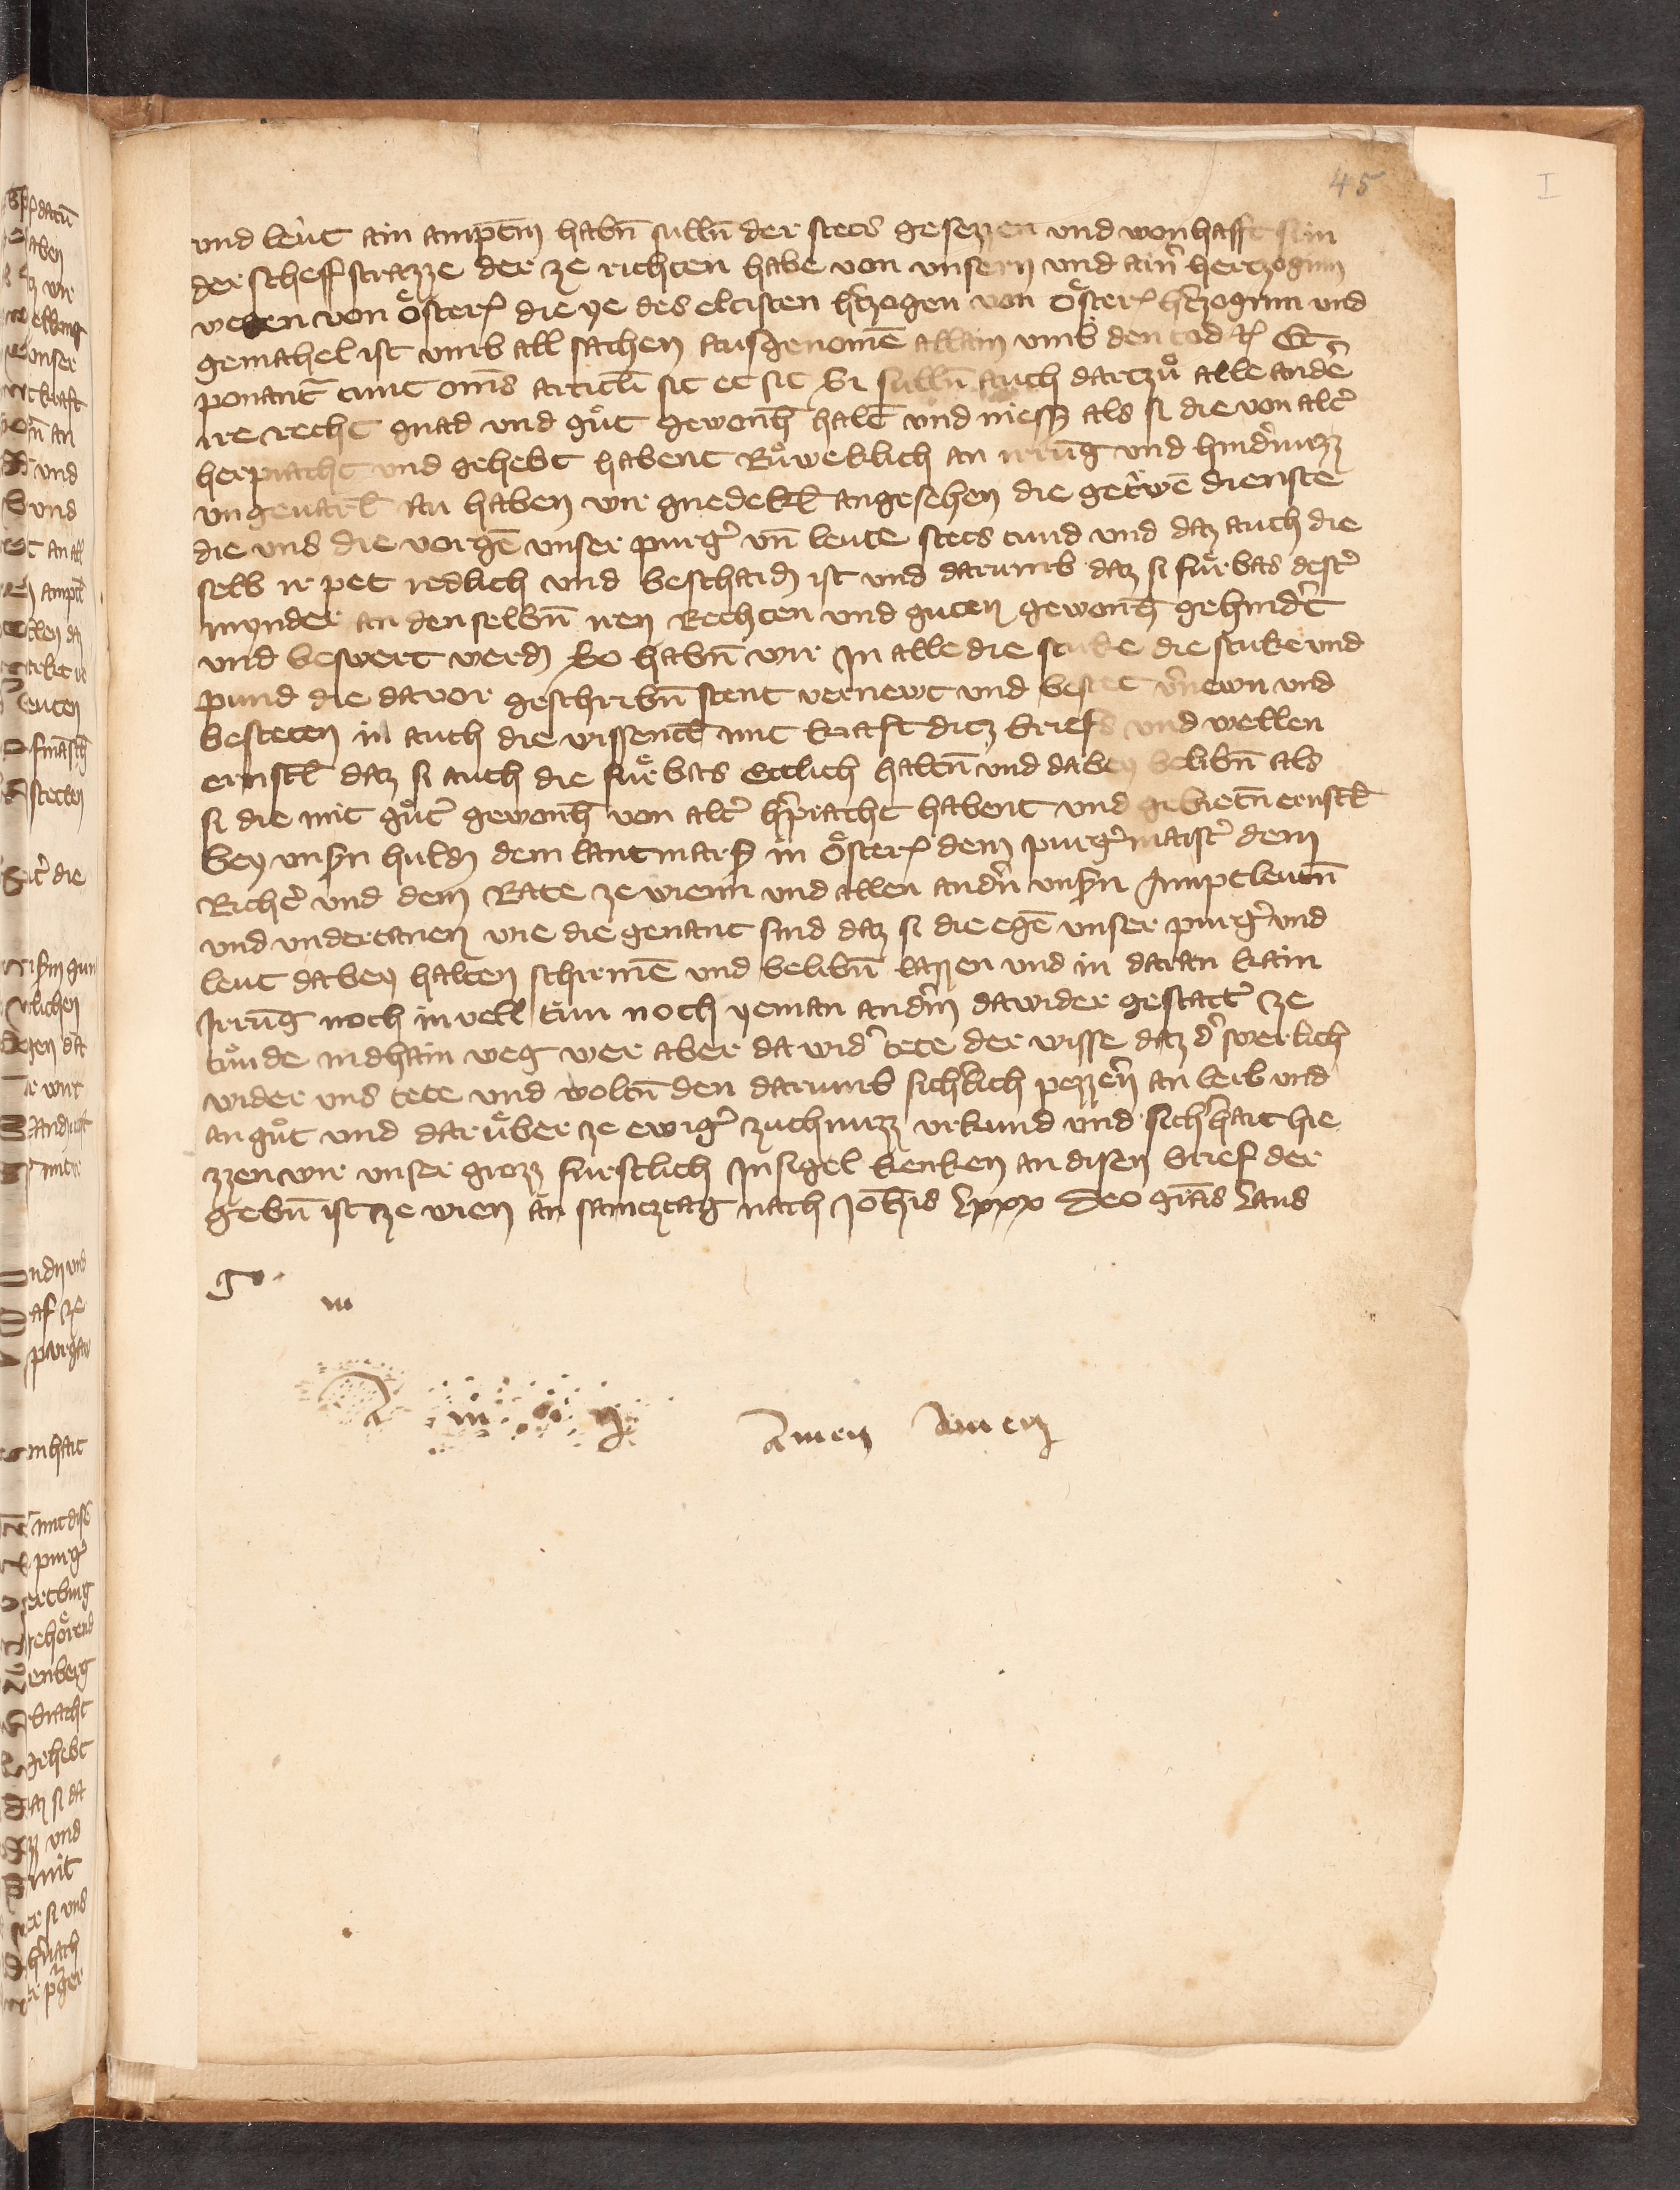 45
I
vnd leut ain amptm̄ habn̄ sulln̄ der stets gesezzen vnd wonhafft sei in
der scheffstrazze der ze richten habe von vnsern vnd ainr̄ hertzoginn
wegen von Österr die ye des eltisten hr̄tzogen von Österr hr̄tzoginn vnd
gemahel ist vmb all sachen ausgenomē allain vmb den tod etc Et
ponant̄ tunc om̄s articl̄i sic et sic Si sulln̄ auch dartzů alle ander̄
ire recht gnad vnd gůt gewonh̄ halt̄ vnd niessz als si die von alter̄
herpracht vnd gehebt habent Růweklich an irrūg vnd hindr̄nuzz
vngeuarl̄ an haben wir gnedekl̄ angesehen die getr̄wē dienste
die vns die vorgen̄ vnser purgr̄ vn̄ leute stets tund vnd daz auch die
selb ir pet redlich vnd beschaidn̄ ist vnd darumb daz si fúrbas dester̄
mynder an den selbn̄ iren Rechten vnd guten gewonh̄ gehindr̄t
vnd beswert werdn̄ So habn̄ wir In alle die stuke die stuke vnd
pund die dauor geschribn̄ stent vernewt vnd bestet vr̄newn vnd
besteten in auch die wissentl̄ mit kraft ditz briefs vnd wellen
ernstl̄ daz si auch die fúrbas Ettlich haltn̄ vnd dabey belibn̄ als
si die mit gůter̄ gewonh̄ von alter̄ hr̄pracht habent vnd gebietn̄ ernstl̄
bey vnsern huldn̄ dem lantmarsch̄ in Österr dem purgr̄maister̄ dem
Richter̄ vnd dem Rate ze wienn vnd allen andr̄n vnsern Amptleutn̄
vnd vndertanen wie die genant sind daz si die egen̄ vnser purgr̄ vnd
leut dabey halten schirmē vnd belibn̄ lazzen vnd in daran kain
Irrūg noch inuell tůn noch yeman andr̄m dawider gestatt̄ ze
tůnde in dhain weg wer aber da widr̄ tete der wisse daz dr̄ swerlich
wider vns tete vnd woltn̄ den darumb sichl̄ich pezzern̄ an leib vnd
an gůt vnd darúber ze ewigr̄ zuchnuzz vrkund vnd sichr̄hait hie
zzen wir vnser grozz furstlich Insigel henken an disen brief der
gebn̄ ist ze wien an samcztag nach Joh̄is Lxxx Deo gr̄as Laus
go
m
A m e n Amen Amen